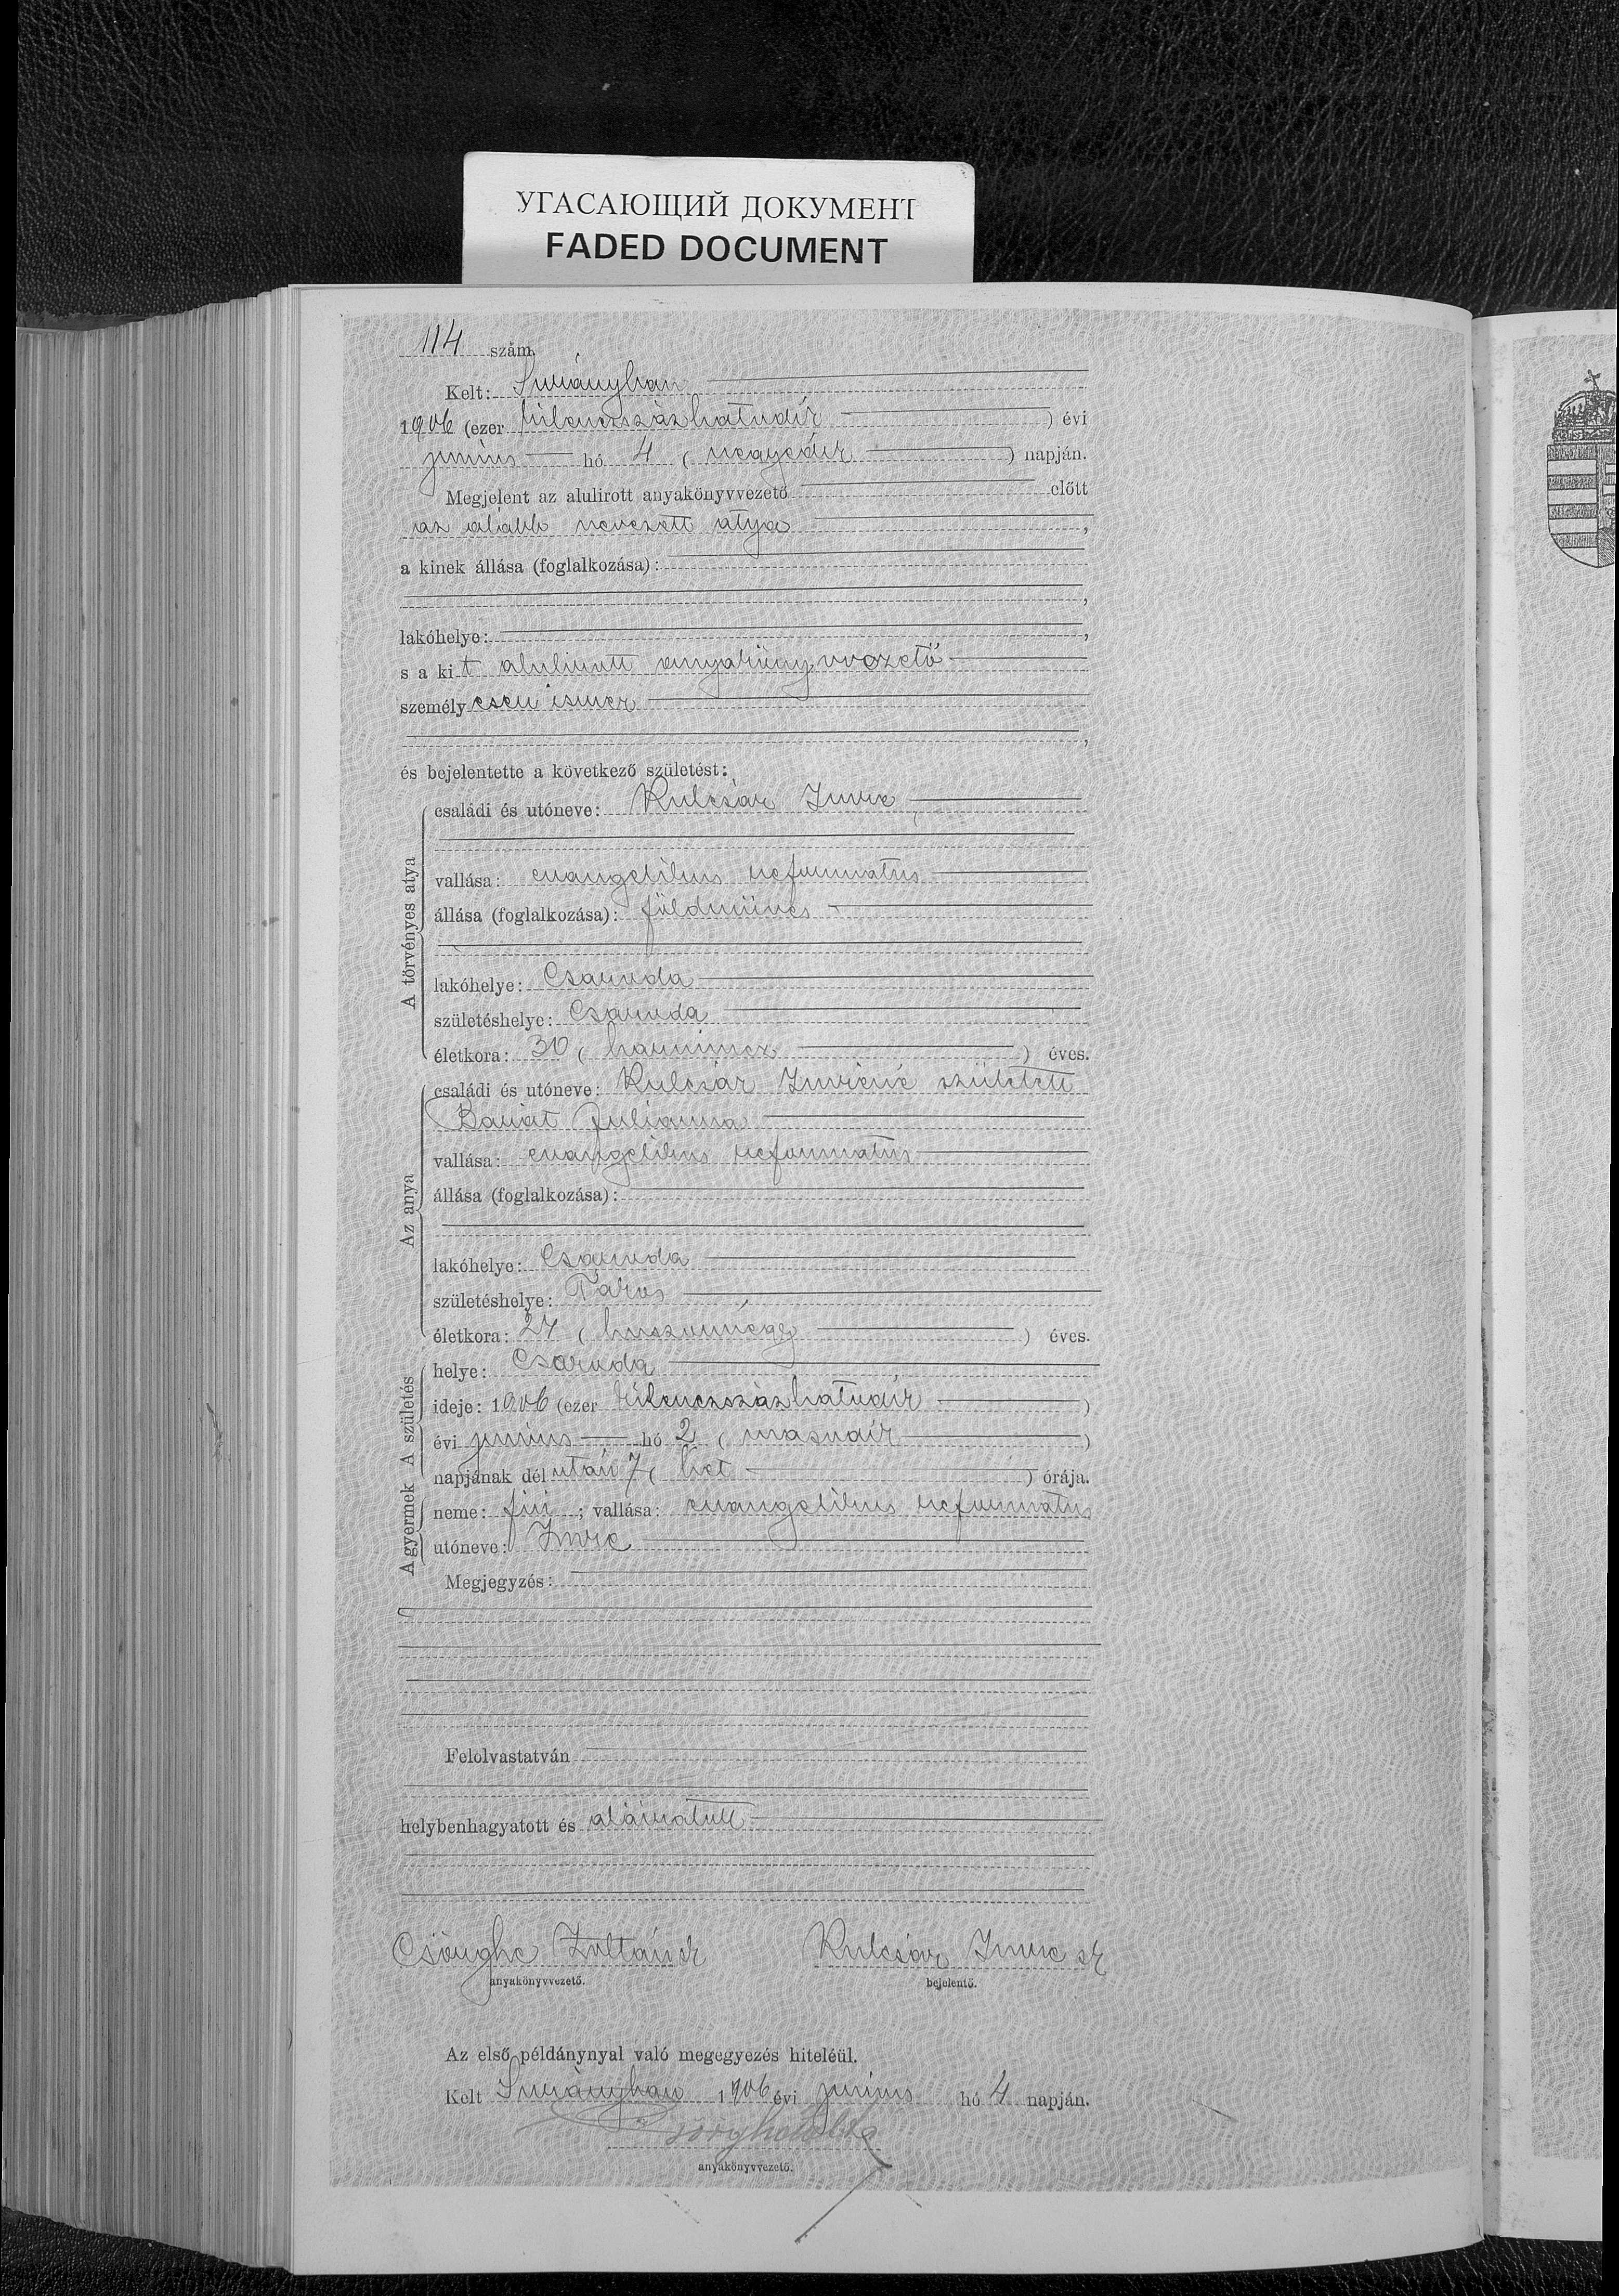 УГАСАЮЩИЙ ДОКУМЕНТ
FADED DOCUMENT
114 szám.
Kelt: Surányban
1906 (ezer kilenczszázhatodik) évi
junius hó 4 (negyedik) napján.
Megjelent az alulirott anyakönyvvezető előtt
az alább nevezett atya,
a kinek állása (foglalkozása):
,
lakóhelye: ,
s a kit alulirott anyakönyvvezető
személyesen ismer
,
és bejelentette a következő születést:
A törvényes atya
családi és utóneve: Kulcsár Imre
vallása: evangelikus reformatus
állása (foglalkozása): földmüves
lakóhelye: Csaroda
születéshelye: Csaroda
életkora: 30 (harmincz) éves.
Az anya
családi és utóneve: Kulcsár Imréné született
Barát Julianna
vallása: evangelikus reformatus
állása (foglalkozása):
lakóhelye: Csaroda
születéshelye: Tákos
életkora: 24 (huszonnégy) éves.
A születés
helye: Csaroda
ideje: 1906 (ezer kilenczszázhatodik)
évi junius hó 2 (második)
napjának délután 7 (hét) órája.
A gyermek
neme: fiú; vallása: evangelikus reformatus
utóneve: Imre
Megjegyzés:
Felolvastatván
helybenhagyatott és aláiratott
Zoltán sk Kulcsár Imre sk
anyakönyvvezető. bejelentő.
Az első példánynyal való megegyezés hiteléül.
Kelt Surányban 1906 évi junius hó 4 napján.
anyakönyvvezető.